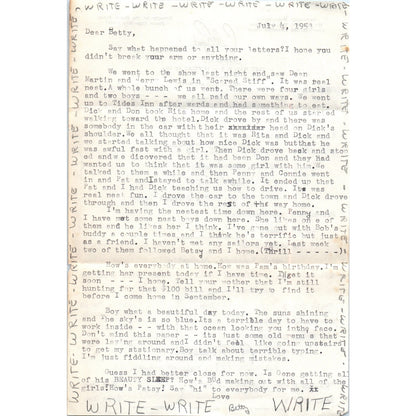 WRITE - WRITE - WRITE - WRITE - WRITE - WRITE - WRITE
July 4, 1953
Dear Betty,
Say what happened to all your letters? I hope you
didn't break your arm or anything.
We went to the show last night and saw Dean
Martin and Jerry Lewis in "Scared Stiff". It was real
neat. A whole bunch of us went. There were four girls
and two boys --- we all paid our own ways. We went
up to Tides Inn after words and had something to eat.
Dick and Don took Bits home and the rest of us started
walking toward the hotel. Dick drove by and there was
somebody in the car with their head on Dick's
shoulder. We all thought that it was Bits and Dick and
we started talking about how nice Dick was but that he
was awful fast with a girl. Then Dick drove back and
and we discovered that it had been Don and they had
wanted us to think that it was some girl with him. We
talked to them a while and then Penny and Connie went
in and Pat and I stayed to talk awhile. It ended up that
Pat and I had Dick teaching us how to drive. It was
real neat fun. I drove the car to the town and Dick drove
through and then I drove the rest of the way home.
I'm having the neatest time down here. Penny and
I have met some neat boys down here. She likes one of
them and he likes her I think. I've gone out with Bob's
buddy a couple times and I think he's terrific but just
as a friend. I haven't met any sailors yet. Last week
two of them followed Betsy and I home. (Thrill -----)
How's everybody at home. How was Pam's birthday. I'm
getting her present today if I have time. I'll get it
soon ---- I hope. Tell your mother that I'm still
hunting for that $100 bill and I'll try to find it
before I come home in September.
Boy what a beautiful day today. The suns shining
and the sky's is so blue. Its a terrible day to have to
work inside -- with that ocean looking you in the face.
Don't mind this paper -- its just some old menu's that
were laying around and I didn't feel like going upstairs
to get my stationery. Boy talk about terrible typing.
I'm just fiddling around and making mistakes.
Guess I had better close for now. Is Gene getting all
of his BEAUTY SLEEP? How's Dad making out with all of the
girls? How's Patsy? Say "hi" to everybody for me.
Love
Betty
WRITE - WRITE
WRITE
WRITE - WRITE - WRITE - WRITE - WRITE - WRITE - WRITE
WRITE - WRITE - WRITE - WRITE - WRITE - WRITE - WRITE